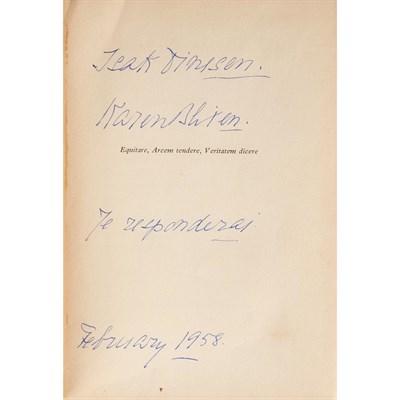 Isak Dinesen.
Karen Blixen.
Equitare, Arcem tendere, Veritatem dicere
Je responderai
February 1958.